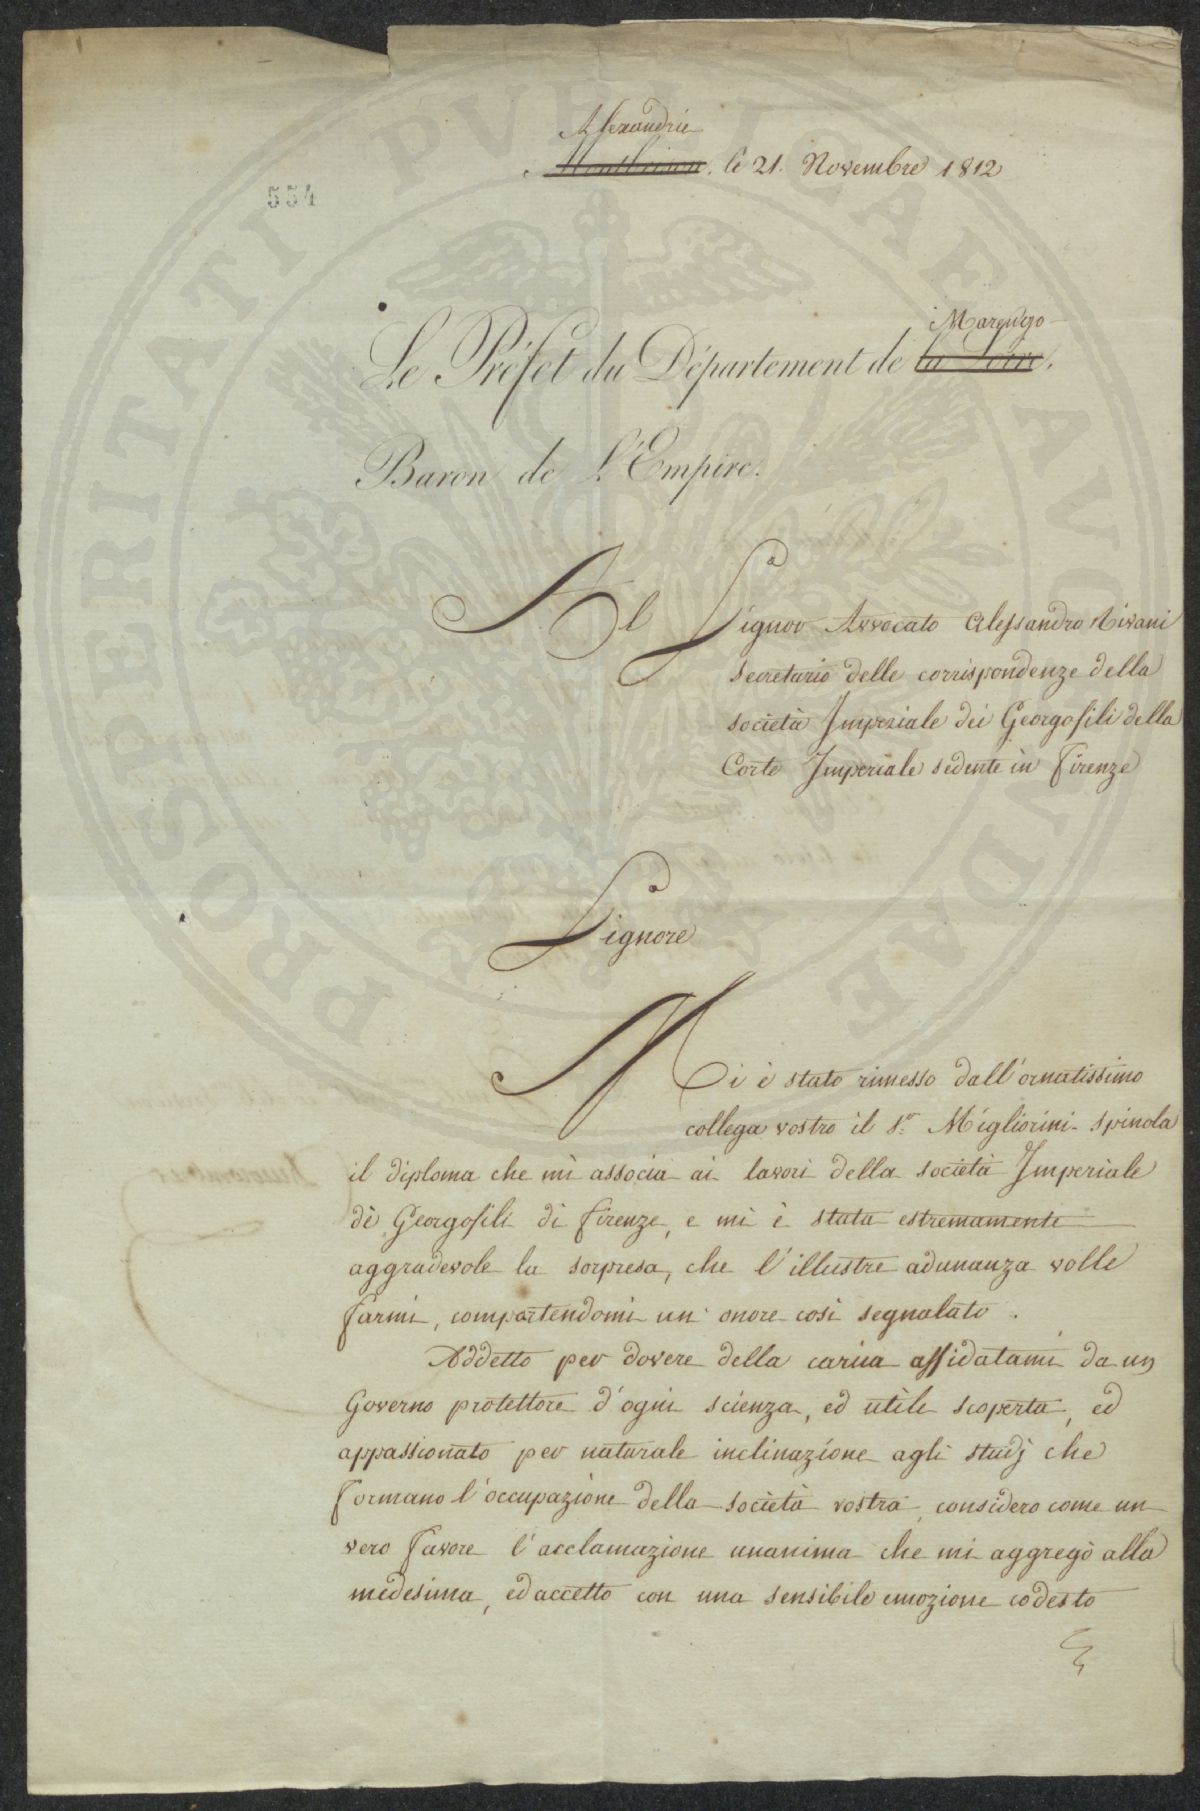 Alexandrie
Montbrison, le 21. Novembre 1812
554
Marengo
Le Préfet du Département de la Loire,
Baron de l'Empire.
Al Signor Avvocato Alessandro Rivani
Secretario delle corrispondenze della
società Imperiale dei Georgofili della
Corte Imperiale sedente in Firenze
Signore
Mi è stato rimesso dall'ornatissimo
collega vostro il S.r Migliorini Spinola
il diploma che mi associa ai lavori della società Imperiale
dè Georgofili di Firenze, e mi è stata estremamente
aggradevole la sorpresa, che l'illustre adunanza volle
farmi, compartendomi un' onore così segnalato.
Addetto per dovere della carica affidatami da un
Governo protettore d'ogni scienza, ed utile scoperta, ed
appassionato per naturale inclinazione agli studj che
formano l'occupazione della società vostra, considero come un
vero favore l'acclamazione unanima che mi aggregò alla
medesima, ed accetto con una sensibile emozione codesto
PROSPERITATI PVBLICAE AVGENDAE